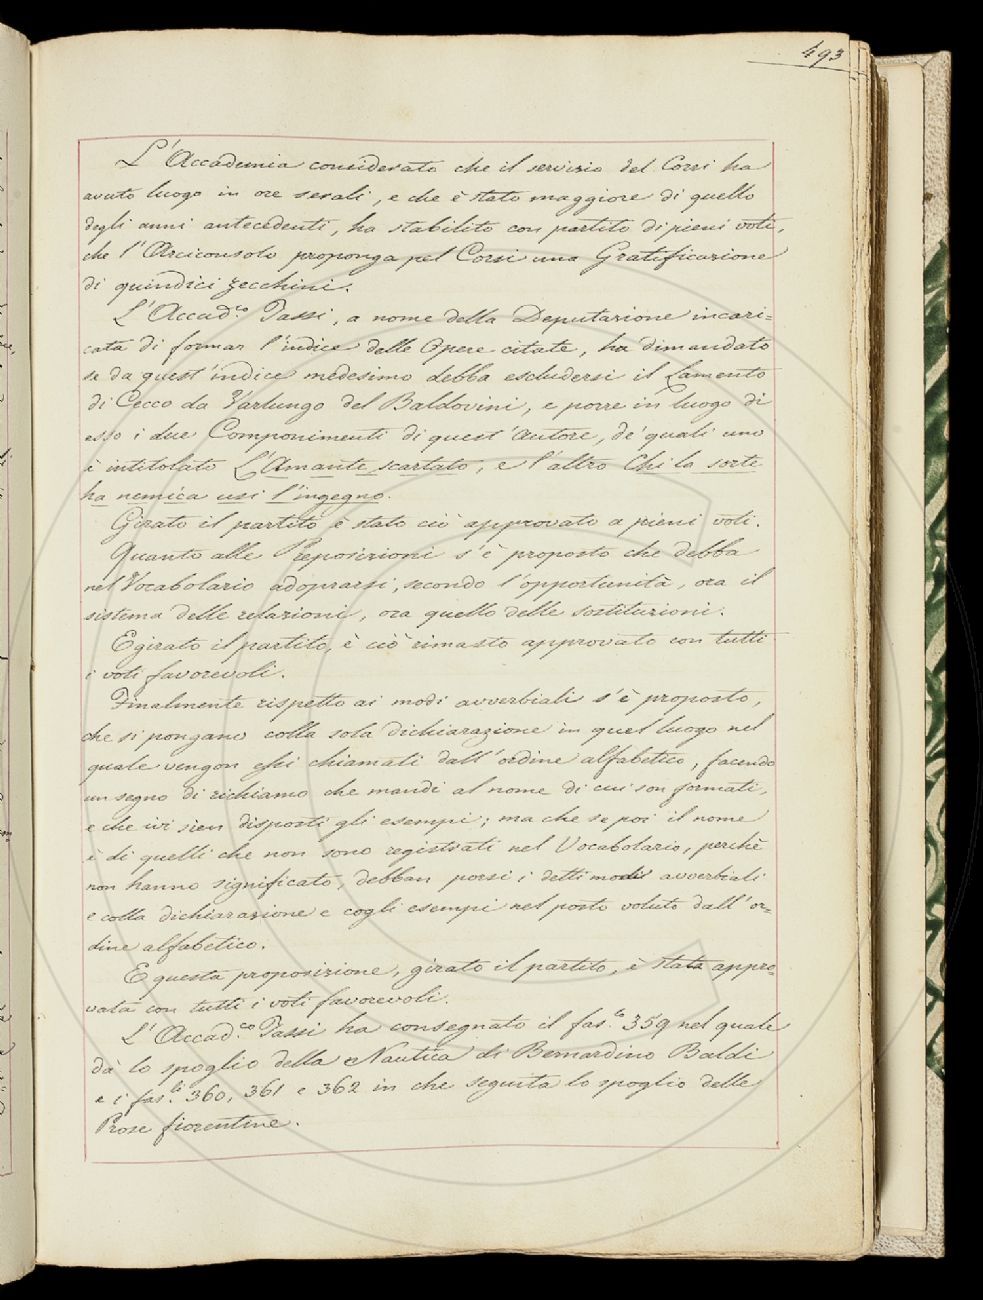 493
L'Accademia considerato che il servizio del Corsi ha
avuto luogo in ore serali, e che è stato maggiore di quello
degli anni antecedenti, ha stabilito con partito di pieni voti,
che l'Arciconsolo proponga pel Corsi una Gratificazione
di quindici zecchini.
L'Accad.co Tassi, a nome della Deputazione incari=
cata di formar l'indice delle Opere citate, ha dimandato
se da quest'indice medesimo debba escludersi il Lamento
di Cecco da Varlungo del Baldovini, e porre in luogo di
esso i due Componimenti di quest'autore, de' quali uno
è intitolato L'Amante scartato, e l'altro Chi la sorte
ha nemica usi l'ingegno.
Girato il partito è stato ciò approvato a pieni voti.
Quanto alle Preposizioni s'è proposto che debba
nel Vocabolario adoprarsi, secondo l'opportunità, ora il
sistema delle relazioni, ora quello delle sostituzioni.
E girato il partito, è ciò rimasto approvato con tutti
i voti favorevoli.
Finalmente rispetto ai modi avverbiali s'è proposto,
che si pongano colla sola dichiarazione in quel luogo nel
quale vengon essi chiamati dall'ordine alfabetico, facendo
un segno di richiamo che mandi al nome di cui son formati,
e che ivi sien disposti gli esempi; ma che se poi il nome
è di quelli che non sono registrati nel Vocabolario, perchè
non hanno significato, debban porsi i detti modi avverbiali
e colla dichiarazione e cogli esempi nel posto voluto dall'or=
dine alfabetico.
E questa proposizione, girato il partito, è stata appro=
vata con tutti i voti favorevoli.
L'Accad.co Tassi ha consegnato il fas.lo 359 nel quale
dà lo spoglio della Nautica di Bernardino Baldi
e i fas.li 360, 361 e 362 in che seguita lo spoglio delle
Prose fiorentine.